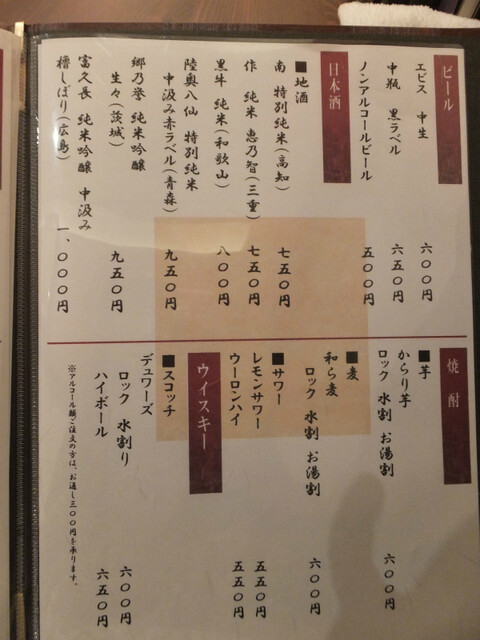 ビール
エビス 中生 六〇〇円
中瓶 黒ラベル 六五〇円
ノンアルコールビール 五〇〇円
日本酒
■地酒
南 特別純米(高知) 七五〇円
作 純米 恵乃智(三重) 七五〇円
黒牛 純米(和歌山) 八〇〇円
陸奥八仙 特別純米
中汲み赤ラベル(青森) 九五〇円
郷乃誉 純米吟醸
生々(茨城) 九五〇円
富久長 純米吟醸 中汲み
槽しぼり(広島) 一、〇〇〇円
焼酎
■芋
からり芋
ロック 水割 お湯割 六〇〇円
■麦
和ら麦
ロック 水割 お湯割 六〇〇円
■サワー
レモンサワー 五五〇円
ウーロンハイ 五五〇円
ウイスキー
■スコッチ
デュワーズ
ロック 水割り 六〇〇円
ハイボール 六五〇円
※アルコール類ご注文の方は、お通し三〇〇円を承ります。